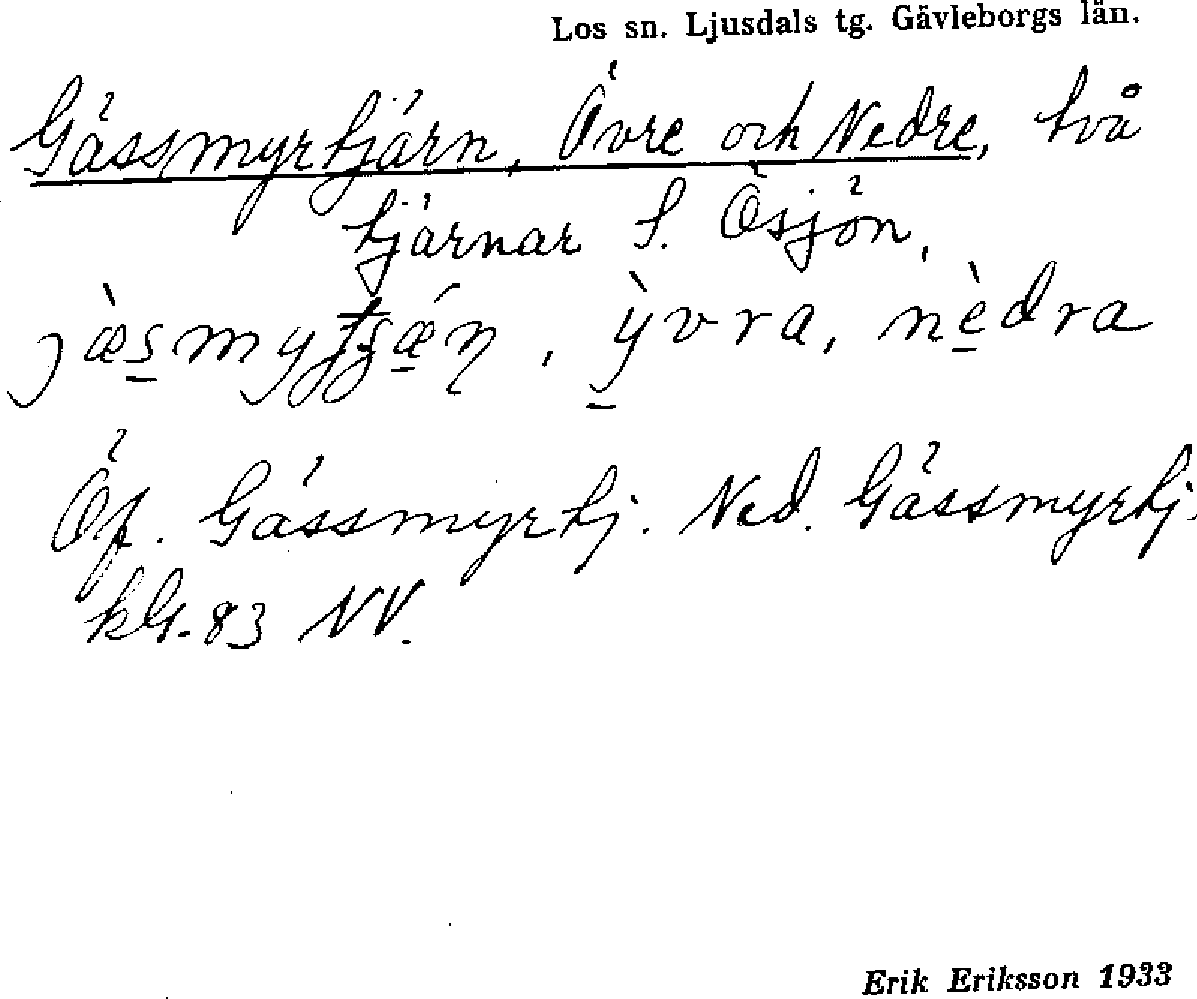 Los sn. Ljusdals tg. Gävleborgs län.
Gässmyrtjärn, Övre och Nedre, två
tjärnar S. Ösjön,
ỳvra, nèdra
Öf. Gässmyrtj. Ned. Gässmyrtj.
kbl. 83 NV.
Erik Eriksson 1933